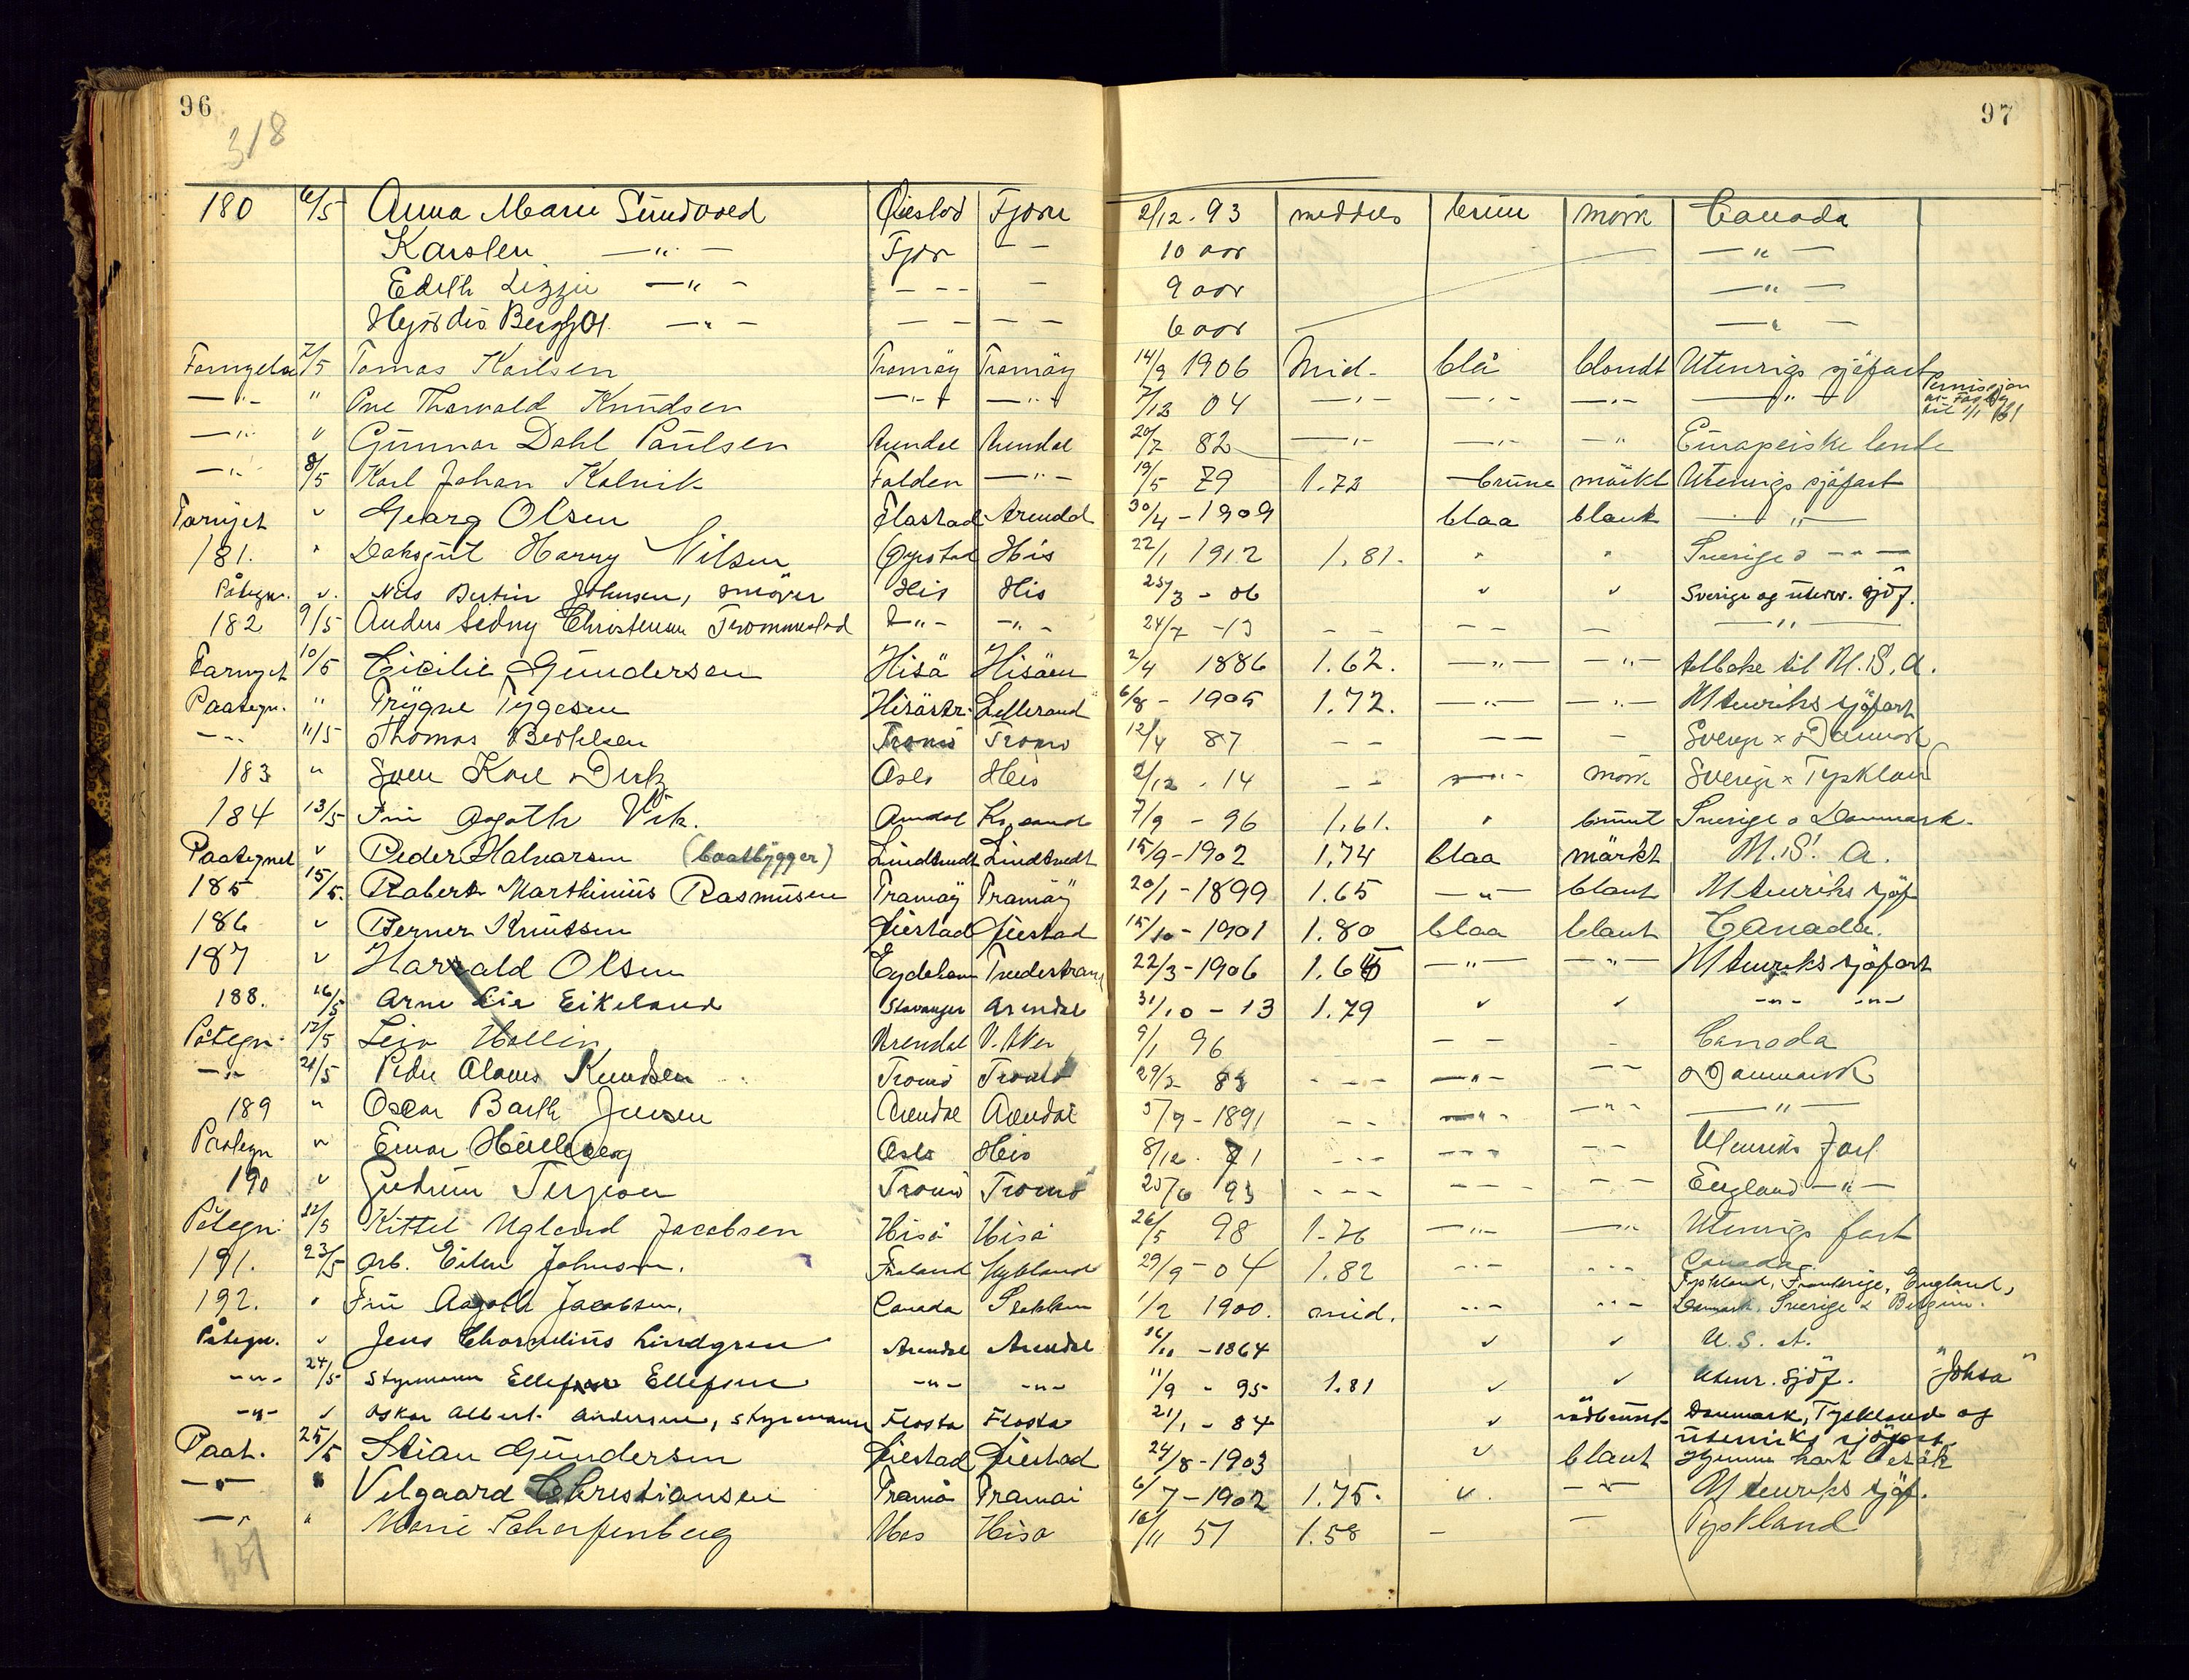 96
97
318
180 6/5 Anna Marie Sundvoed Øiestad Fjære 2/12.93 middels brun mørk Canada
Karsten —"— Fjær — — 10 aar —"—
Edith Lizzie —"— — — — 9 aar —"—
Hjørdis —"— — — — — 6 aar —"—
Fornyelse 7/5 Tomas Karlsen Tromöy Tromöy 14/9 1906 Mid- blå blondt Utenrigs sjöfart
—"— " Thorvald Knudsen —"— —"— 7/12 04 —"— —"— —"— —"— Permisjon
—"— " Gunnar Dahl Paulsen Arendal Arendal 20/7 82 —"— —"— —" Europeiske lande
—"— 8/5 Karl Johan Kalvik Halden —"— 19/5 79 1.72 brune mörkt Utenrigs sjöfart
Fornyet " Georg Olsen Flostad Arendal 30/4-1909 blaa blont —"—
181. " Harry Nilsen Øyestad His 22/1 1912 1.81. " " Sverige o —"—
Påtegn. " Nils Bertin Johnsen, smörer His His 25/3 - 06 " " Sverige og utenr. sjöf.
182 9/5 Anders Sidny Christensen Trommestad —"— —"— 24/7 -13 — — — — — —"—
Fornyet 10/5 Cicilie Gundersen Hisö Hisöen 2/4 1886 1.62. —"— —"— tilbake til U.S.A.
Paategn. " Trygve Tygesen Lillesand 6/8 - 1905 1.72. —"— —"— Utenriks sjöfart
—"— 11/5 Thomas Berthelsen Tromö Tromö 12/4 87 — — — — — Sverige × Danmark
183 " Sven Karl Dirks Oslo His 2/12 . 14 — — —"— mörk Sverige × Tyskland
184 13/5 Fru Agoth Vik. Arendal Kr.sand 7/9 - 96 1,61. " brunt Sverige o Danmark.
Paategnet " Peder Halvorsen (baatbygger) Lindtvedt Lindtvedt 15/9-1902 1,74 blaa mörkt U.S.A.
185 15/5. Robert Marthinius Rasmussen Tromöy Tromöy 20/1-1899 1.65 —"— blont Utenriks sjöf
186 " Berner Knutsen Øiestad Øiestad 15/10-1901 1.80 blaa blont Canada.
187 " Harald Olsen Eydehavn 22/3-1906 —"— —"— Utenriks sjöfart
188. 16/5 Arne Lie Eikeland Stavanger Arendal 31/10 - 13 1.79 " " —"— —"—
Påtegn. 12/5 Leiv Arendal V. Aker 9/1 96 — — — Canada
—"— 21/5 Peder Olaves Knudsen Tromö Tromö — — — —"— — — Danmark
189 " Oscar Barth Jensen Arendal Arendal 5/9-1891 — — —"— —"— —"—
Paategn " Einar Hellberg Oslo His — — — — — — — — Utenriks fart
190 " Gudrun Terjesen Tromö Tromö 25/6 93 — — — — — — — — England —"—
Påtegn. 22/5 Kittel Ugland Jacobsen Hisö Hisö 26/5 98 1.76 —"— —" Utenrigs fart
191. 23/5 Arb. Johnsen. Froland Mykland 29/9-04 1.82 —"— —"— Canada.
192. " Fru Agoth Jacobsen. Canada Stokken 1/2 1900. mid. —"— —"— Tyskland, Frankrige, England,
Danmark, Sverige & Belgien.
Påtegn. " Jens Chornelius Lindgren Arendal Arendal 16/11 -1864 " " U.S.A.
—"— 24/5 Styrmann Ellefsen —"— —"— 11/9 - 95 1.81 " " Utenr. sjöf. "Johsa"
—"— " Oskar Albert Andersen, Styrmann Flosta Flosta 21/1 - 84 " rödbrunt Danmark, Tyskland og
utenriks sjöfart
Paat. 25/5 Stian Gundersen Øiestad Øiestad 24/8-1903 " blont Hjemme kort besök
—"— " Vilgaard Christiansen Tromö 6/7-1902 1.75. " —"— Utenriks sjöf.
—"— " Marie Scharfenberg Hisö 16/11 51 1.58 — — Tyskland